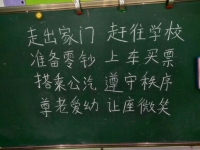 走出家门 赶往学校
准备零钞 上车买票
搭乘公汽 遵守秩序
尊老爱幼 让座微笑